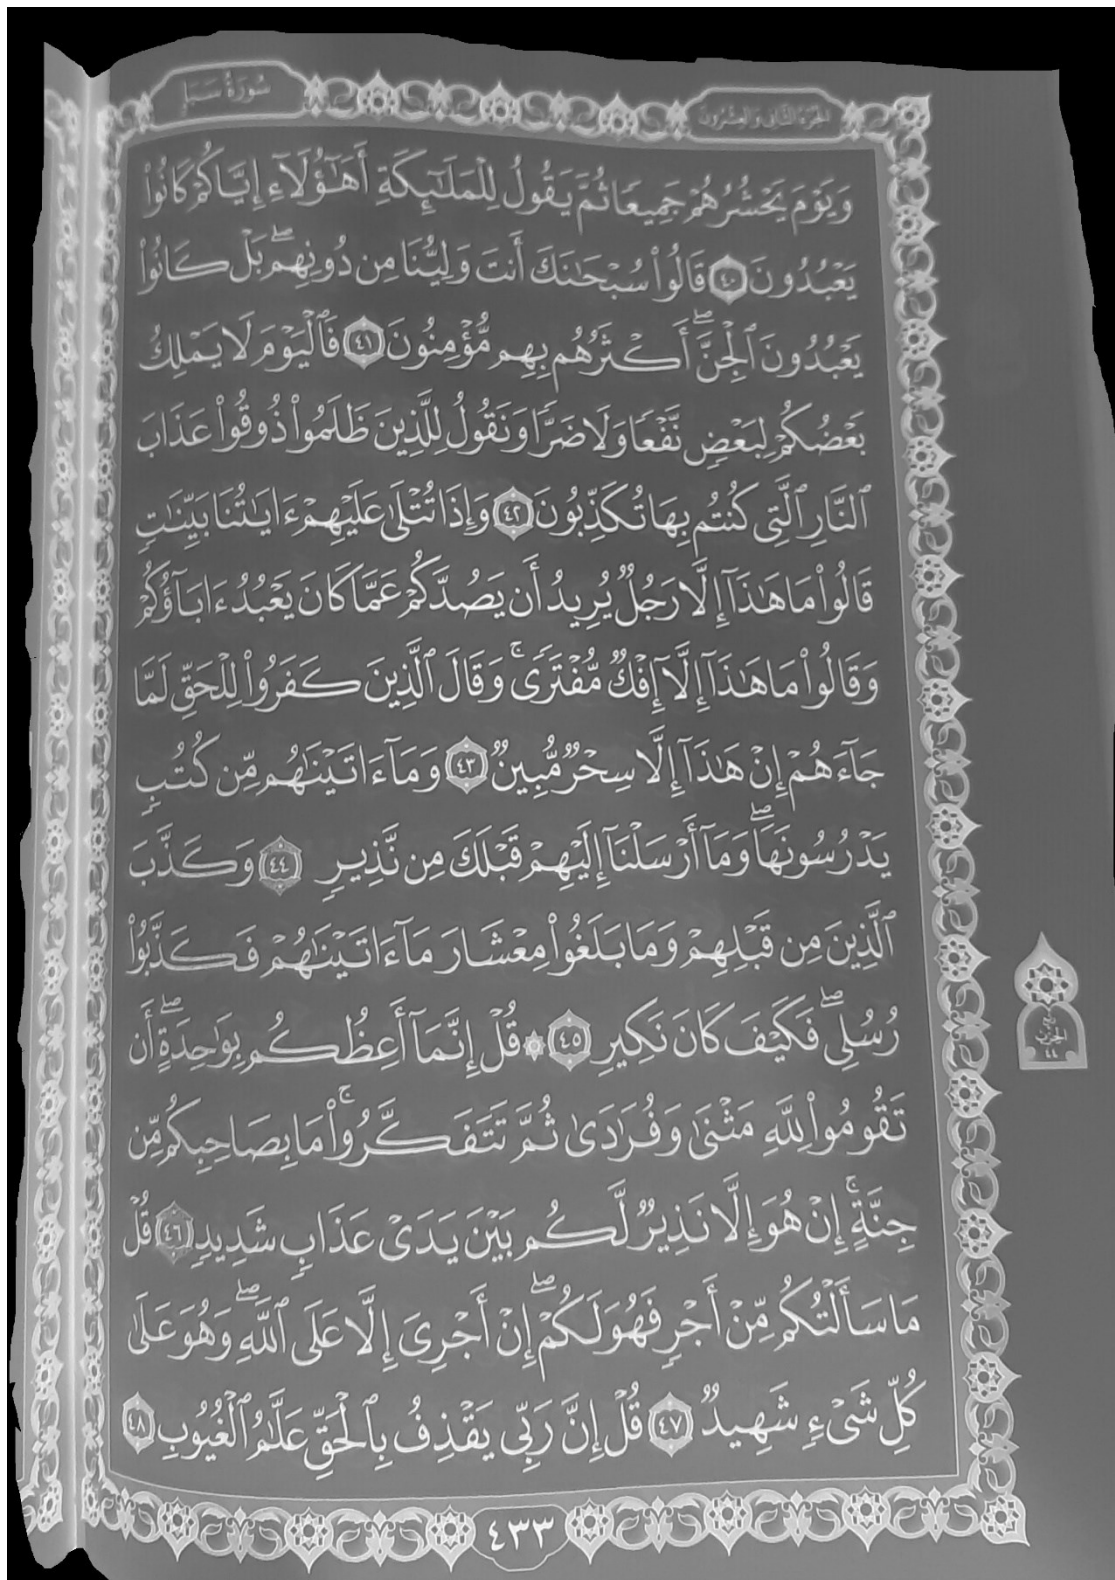 الجزء الثاني والعشرون
سُورَةُ سَبَإٍ
وَيَوْمَ يَحْشُرُهُمْ جَمِيعًا ثُمَّ يَقُولُ لِلْمَلَٰٓئِكَةِ أَهَٰٓؤُلَآءِ إِيَّاكُمْ كَانُوا۟
يَعْبُدُونَ ٤٠ قَالُوا۟ سُبْحَٰنَكَ أَنتَ وَلِيُّنَا مِن دُونِهِمۖ بَلْ كَانُوا۟
يَعْبُدُونَ ٱلْجِنَّۖ أَكْثَرُهُم بِهِم مُّؤْمِنُونَ ٤١ فَٱلْيَوْمَ لَا يَمْلِكُ
بَعْضُكُمْ لِبَعْضٍ نَّفْعًا وَلَا ضَرًّا وَنَقُولُ لِلَّذِينَ ظَلَمُوا۟ ذُوقُوا۟ عَذَابَ
ٱلنَّارِ ٱلَّتِى كُنتُم بِهَا تُكَذِّبُونَ ٤٢ وَإِذَا تُتْلَىٰ عَلَيْهِمْ ءَايَٰتُنَا بَيِّنَٰتٍ
قَالُوا۟ مَا هَٰذَآ إِلَّا رَجُلٌ يُرِيدُ أَن يَصُدَّكُمْ عَمَّا كَانَ يَعْبُدُ ءَابَآؤُكُمْ
وَقَالُوا۟ مَا هَٰذَآ إِلَّآ إِفْكٌ مُّفْتَرًىۚ وَقَالَ ٱلَّذِينَ كَفَرُوا۟ لِلْحَقِّ لَمَّا
جَآءَهُمْ إِنْ هَٰذَآ إِلَّا سِحْرٌ مُّبِينٌ ٤٣ وَمَآ ءَاتَيْنَٰهُم مِّن كُتُبٍ
يَدْرُسُونَهَاۖ وَمَآ أَرْسَلْنَآ إِلَيْهِمْ قَبْلَكَ مِن نَّذِيرٍ ٤٤ وَكَذَّبَ
ٱلَّذِينَ مِن قَبْلِهِمْ وَمَا بَلَغُوا۟ مِعْشَارَ مَآ ءَاتَيْنَٰهُمْ فَكَذَّبُوا۟
رُسُلِىۖ فَكَيْفَ كَانَ نَكِيرِ ٤٥ ۞ قُلْ إِنَّمَآ أَعِظُكُم بِوَٰحِدَةٍۖ أَن
تَقُومُوا۟ لِلَّهِ مَثْنَىٰ وَفُرَٰدَىٰ ثُمَّ تَتَفَكَّرُوا۟ۚ مَا بِصَاحِبِكُم مِّن
جِنَّةٍۚ إِنْ هُوَ إِلَّا نَذِيرٌ لَّكُم بَيْنَ يَدَىْ عَذَابٍ شَدِيدٍ ٤٦ قُلْ
مَا سَأَلْتُكُم مِّنْ أَجْرٍ فَهُوَ لَكُمْۖ إِنْ أَجْرِىَ إِلَّا عَلَى ٱللَّهِۖ وَهُوَ عَلَىٰ
كُلِّ شَىْءٍ شَهِيدٌ ٤٧ قُلْ إِنَّ رَبِّى يَقْذِفُ بِٱلْحَقِّ عَلَّٰمُ ٱلْغُيُوبِ ٤٨
الحزب
٤٤
٤٣٣